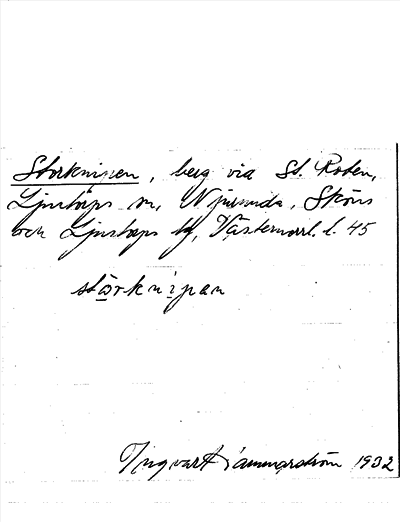 Storknipen, berg via St. Roten,
Ljustorps sn, Njurunda, Sköns
och Ljustorps tg, Västernorrl. l. 45
stårknipan
Ingvart Hammarström 1932